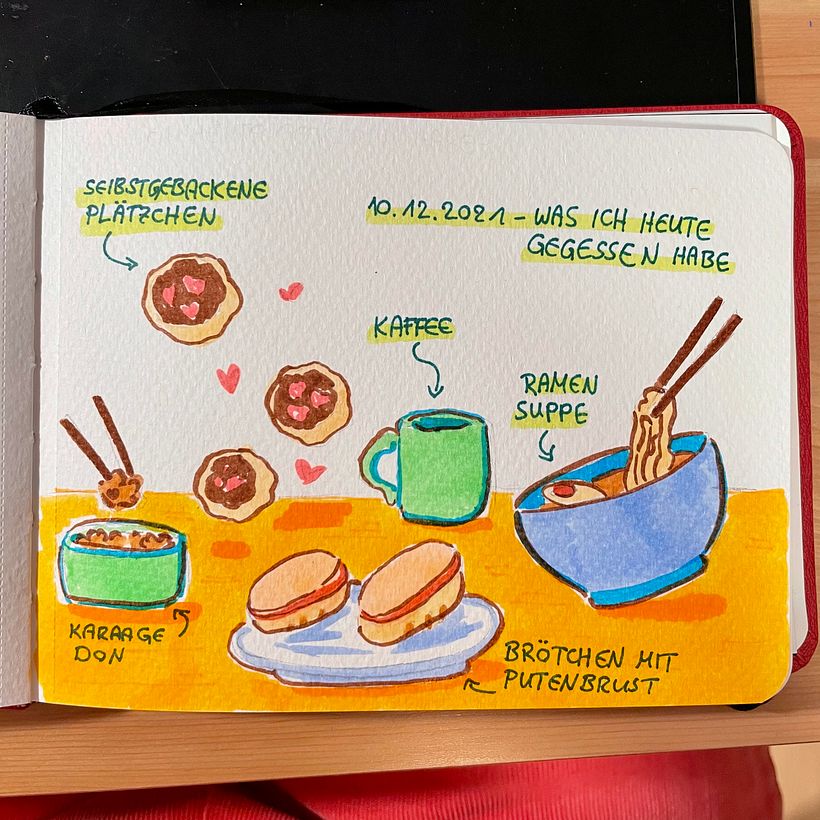 SELBSTGEBACKENE
PLÄTZCHEN
10.12.2021 – WAS ICH HEUTE
GEGESSEN HABE
KAFFEE
RAMEN
SUPPE
KARAAGE
DON
BRÖTCHEN MIT
PUTENBRUST